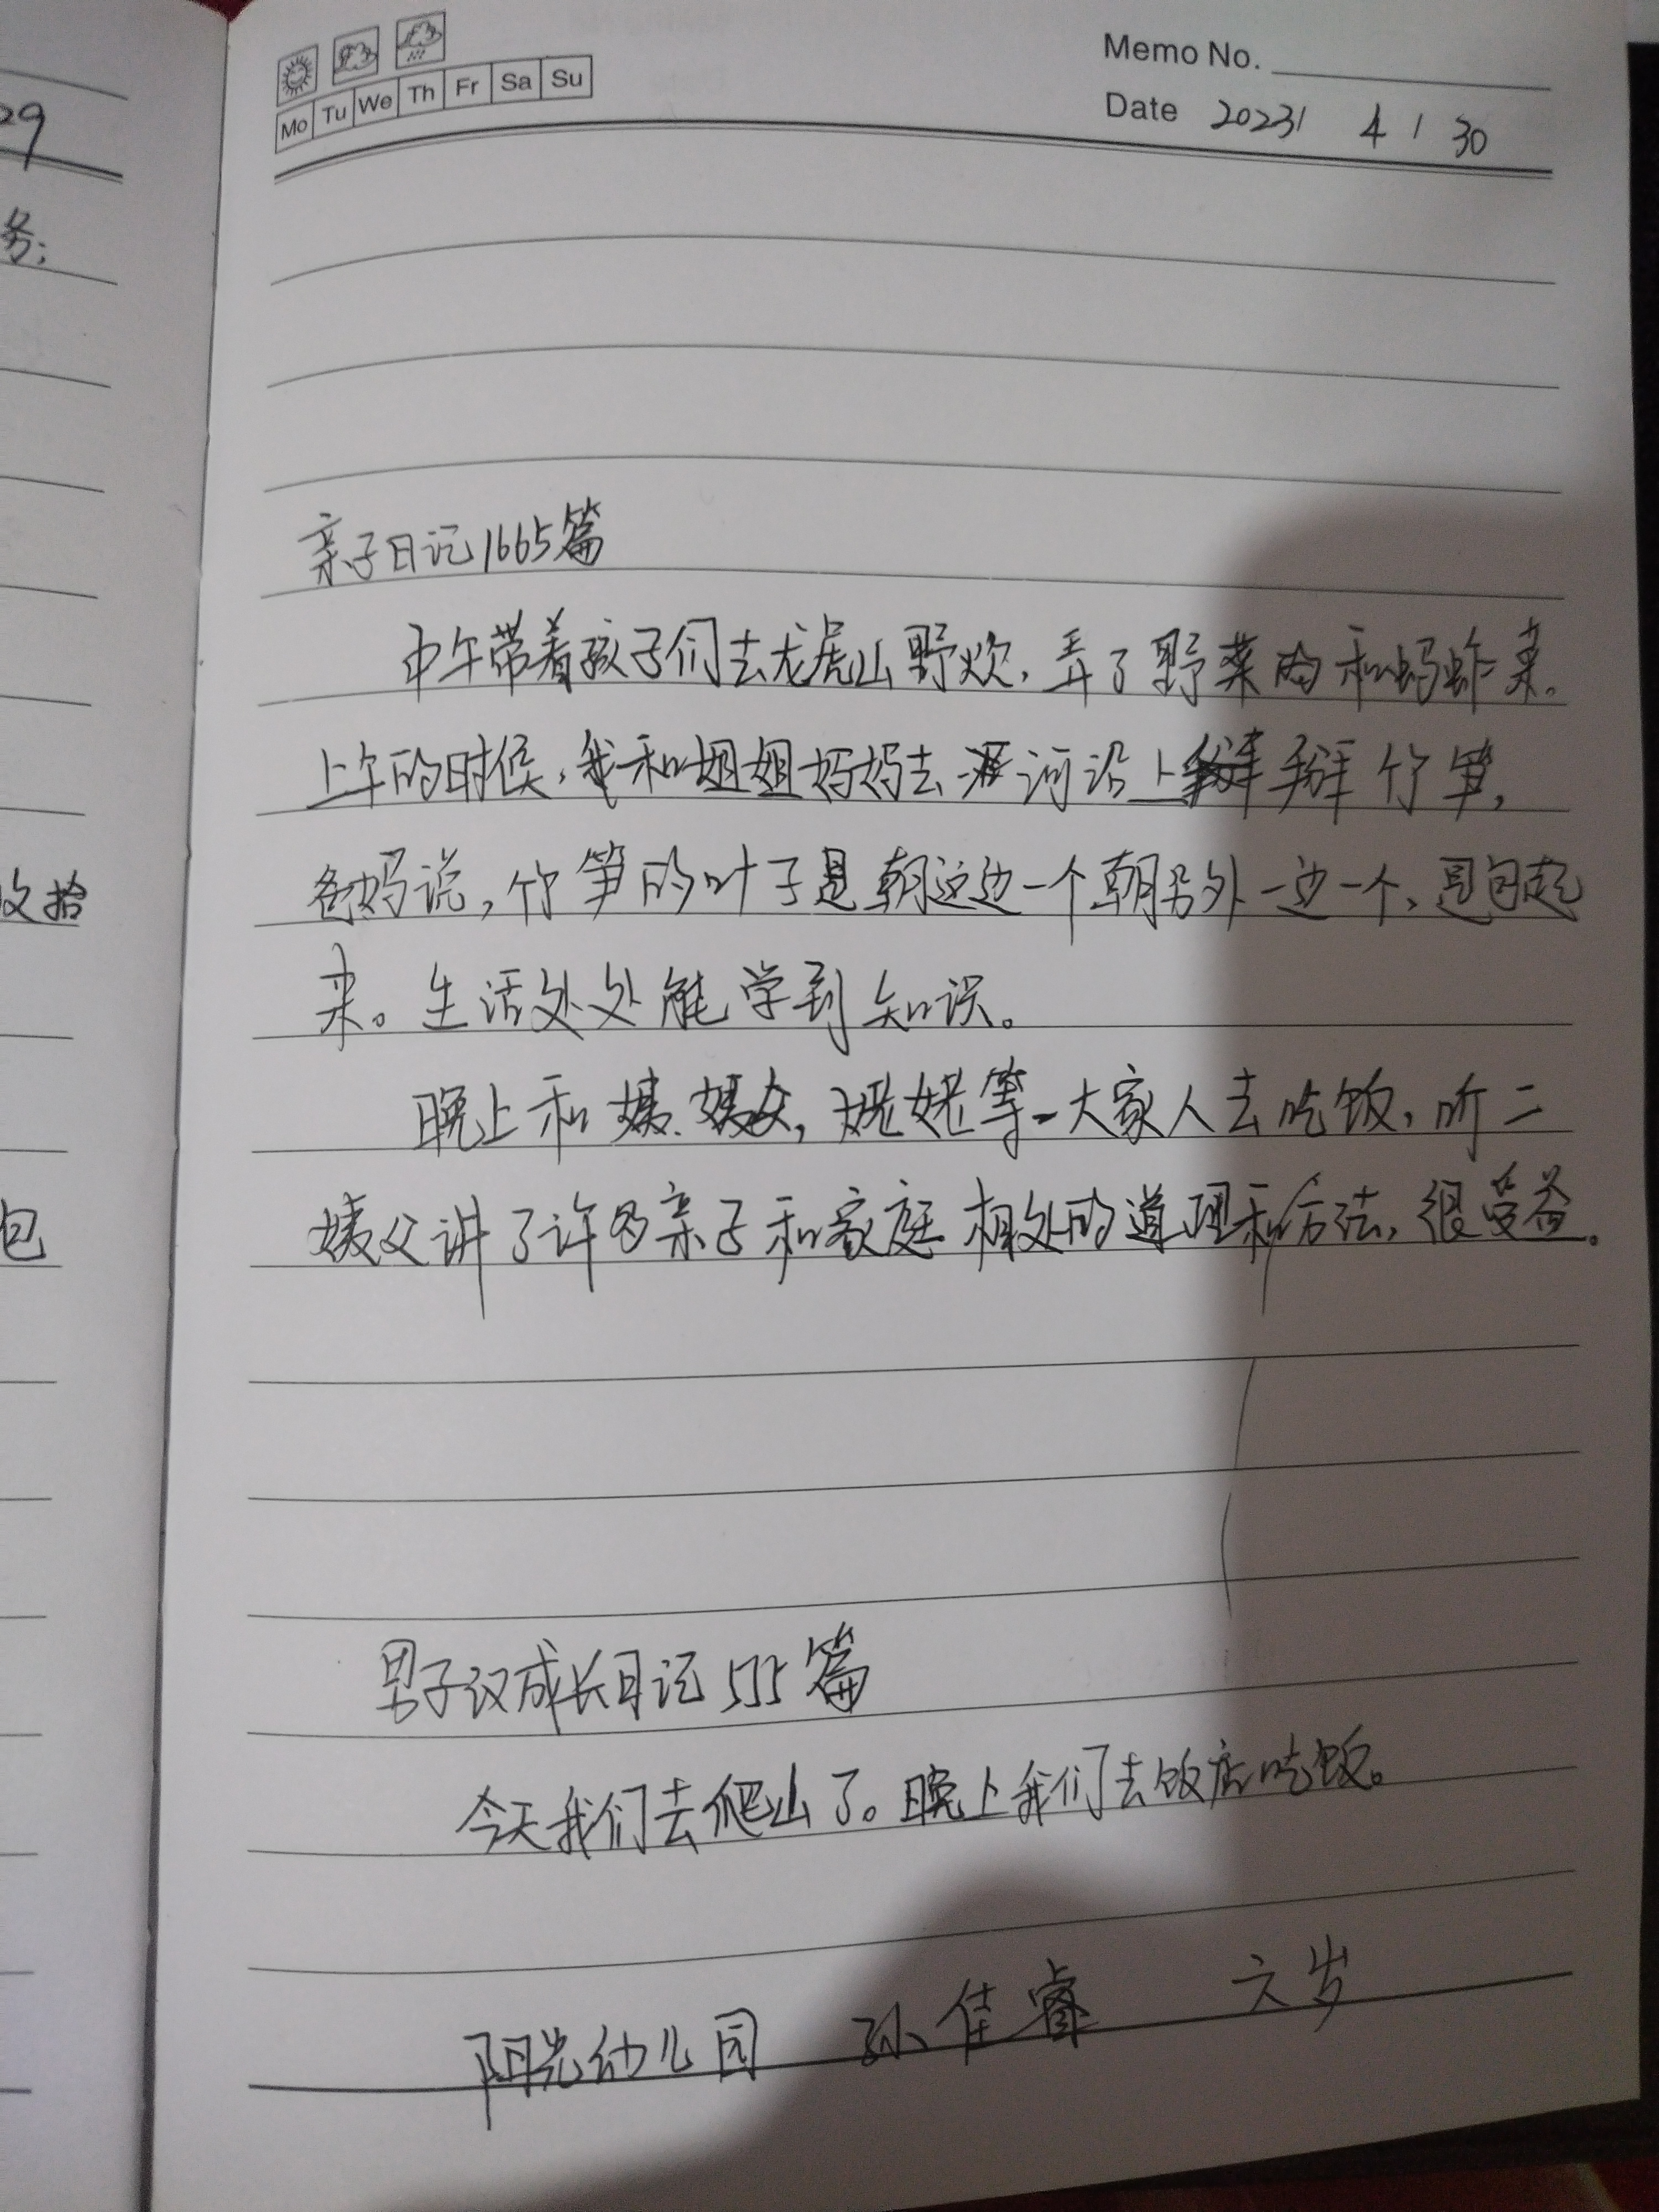 Mo Tu We Th Fr Sa Su
Memo No.
Date 2023/ 4 / 30
29
务:
收拾
包
亲子日记1665篇
中午带着孩子们去龙虎山野炊,弄了野菜肉和蚂蚱菜。
上午的时候,我和姐姐妈妈去河沿上掰竹笋,
爸妈说,竹笋的叶子是朝这边一个朝另外一边一个,是包起
来。生活处处能学到知识。
晚上和姨、姨父,姥姥等一大家人去吃饭,听二
姨父讲了许多亲子和家庭相处的道理和方法,很受益。
男子汉成长日记555篇
今天我们去爬山了。晚上我们去饭店吃饭。
阳光幼儿园 孙佳睿 六岁